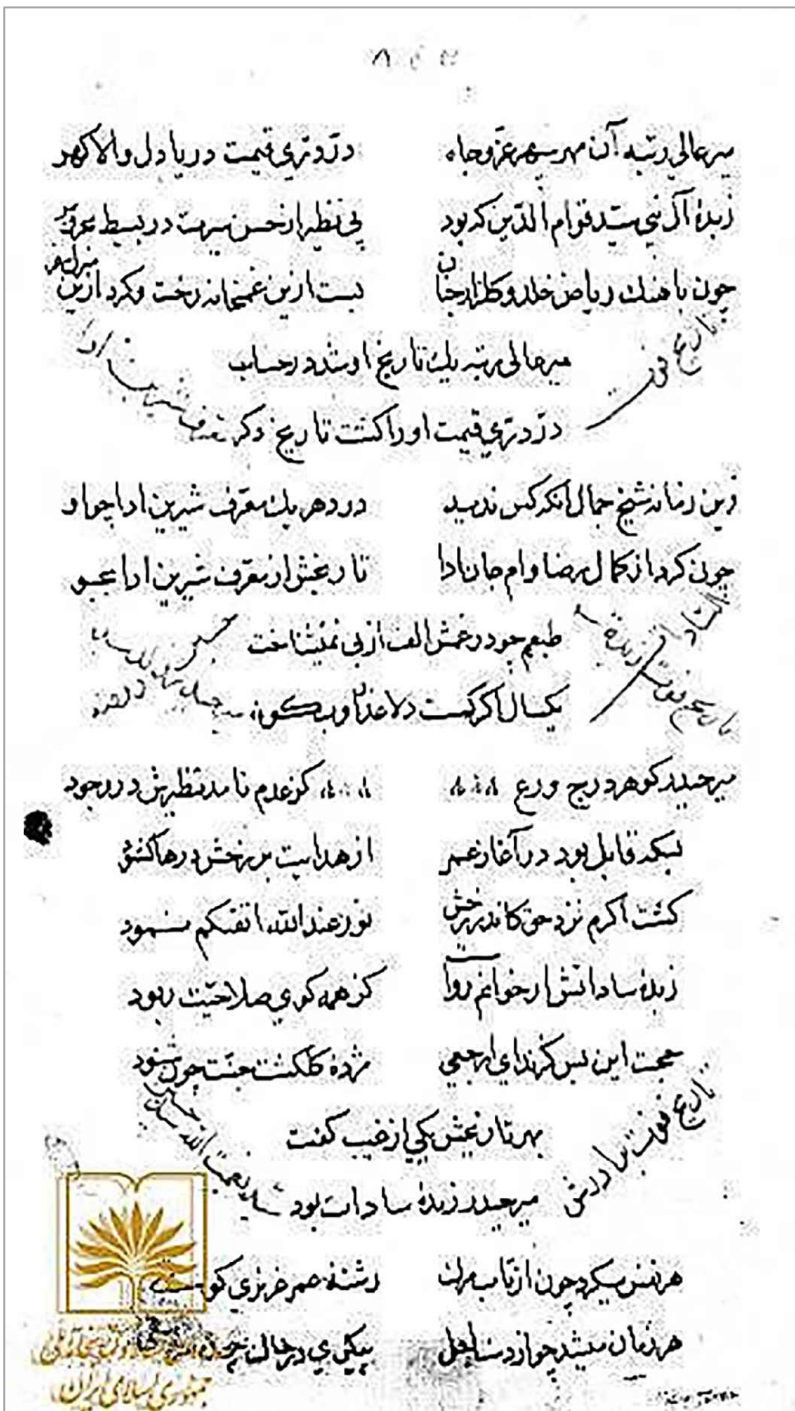 میر عالی رتبه آن مهر سپهر عزّ و جاه درّ دری قیمت دریا دل والا کهر
زبدهٔ آل نبی سید قوام الدین که بود بی نظیر از حسن سیرت در بسیط بحر و بر
چون باهنك ریاض خلد و کلزار جنان بست ازین غمخانه رخت و کرد ازین منزل سفر
تاریخ فوت
میر عالی رتبه یك تاریخ او شد در حساب
درّ دری قیمت او را کشت تاریخ دکر
شیرین ادا
زین زمانه شیخ جمال آنکه کس ندید در دهر یك معرّف شیرین ادا چو او
چون کرد از کمال رضا وام جان ادا تاریخش از معرّف شیرین ادا بجو
تاریخ فوت زبدة السادات
طبعم چو در غمش الف از بی نمیشناخت
یکسال اکر کمست دلا عذر او بکو
میر حیدر کوهر درج ورع کز عدم نامد نظیرش در وجود
بسکه قابل بود در آغاز عمر از هدایت بر رخش درها کشود
کشت اکرم نزد حق کاندر رخش نور عند الله اتقیکم نمود
زبدهٔ ساداتش ار خوانم رواست کز همه کوی صلاحیت ربود
حجت این بس کز ندای ارجعی مژدهٔ کلکشت جنت چون شنود
تاریخ فوت برادرش
بهر تاریخش یکی از غیب کفت
میر حیدر زبدهٔ سادات بود
سید نعمت الله
هر نفس میکرد چون از تاب مرك رشتهٔ عمر عزیزی
هر زمان میشد چو از دست اجل پیکری در خاك
جمهوری اسلامی ایران